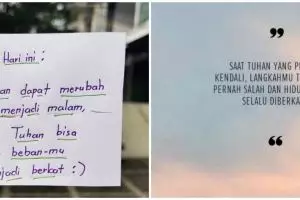 Hari ini :
an dapat merubah
menjadi malam,
Tuhan bisa
beban-mu
jadi berkat :)
❝
SAAT TUHAN YANG P
KENDALI, LANGKAHMU T
PERNAH SALAH DAN HIDU
SELALU DIBERKA
❞